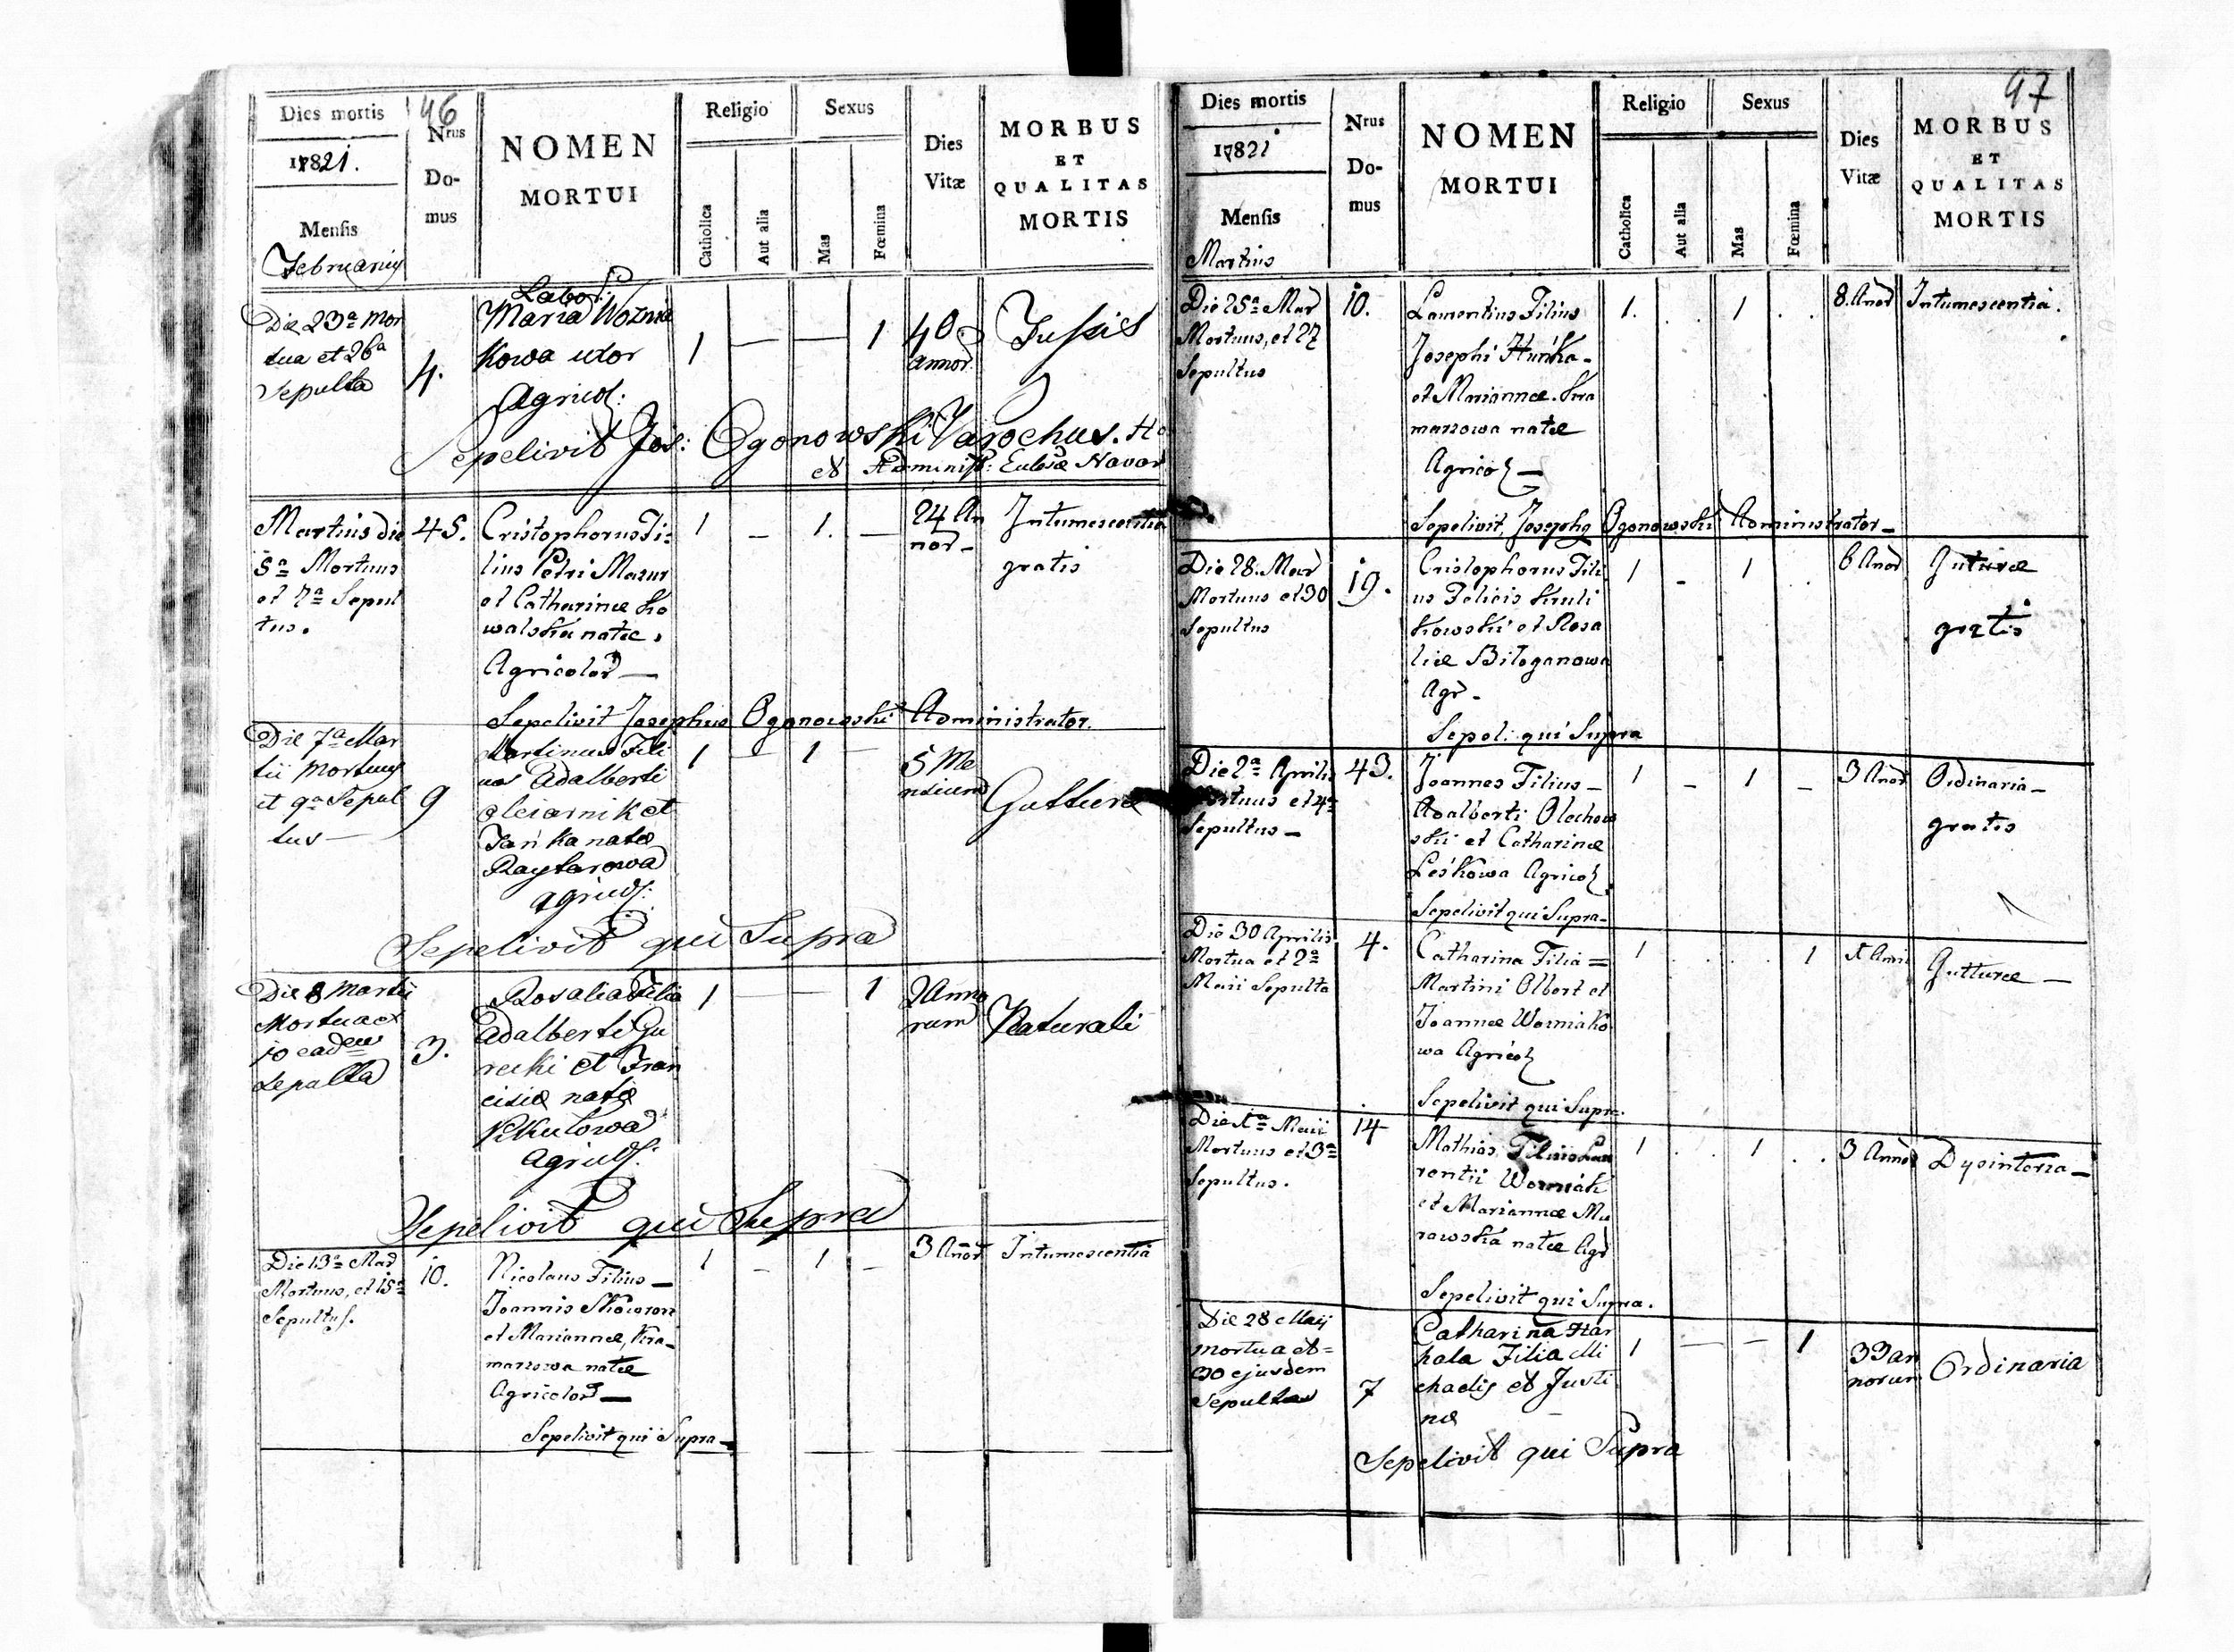 46
Dies mortis
1821.
Mensis
Februarius
Nrus Do-mus
NOMEN
MORTUI
Religio
Catholica
Aut alia
Sexus
Mas
Fœmina
Dies
Vitæ
MORBUS
ET
QUALITAS
MORTIS
Die 23a Mor
tua et 26a
Sepulta
4.
Labor:
Maria Woznia
kowa uxor
Agricol:
1 — — 1
40
annor
Tussis
Sepelivit Jos: Ogonowski Parochus. Ho
et Administ: Eccl
Martius die
5a Mortuus
et 7a Sepul
tus.
45.
Cristophorus Fi-
lius Petri Mazur
et Catharinæ Ko
walska natæ.
Agricolar —
1 — 1. —
24 An
nor —
Intumescentia
gratis
Sepelivit Josephus Ogonowski Administrator.
Die 7a Mar
tii Mortuus
et 9a Sepul
tus —
9
Martinus Fili
us Adalberti
oleiarnik et
natæ
Raytarowa
agricol:
1 — 1 —
5 Me
nsium
Gutture
Sepelivit qui Supra
Die 8 Martii
Mortua et
10 eadem
Sepulta
3.
Rosalia Filia
Adalberti Gu
recki et Fran
cisiæ natæ
agricol:
1 — — 1
2 Anno
rum
Naturali
Sepelivit qui Supra
Die 13a Mar
Mortuus, et 15a
Sepultus.
10.
Nicolaus Filius —
Joannis Skowron
et Mariannæ, Kra-
marzowa natæ
Agricolar —
1 — 1 —
3 Anor
Intumescentia
Sepelivit qui Supra —
97
Dies mortis
1821
Mensis
Martius
Nrus Do-mus
NOMEN
MORTUI
Religio
Catholica
Aut alia
Sexus
Mas
Fœmina
Dies
Vitæ
MORBUS
ET
QUALITAS
MORTIS
Die 25a Mar
Mortuus, et 27
Sepultus
10.
Laurentius Filius
Josephi
et Mariannæ. Kra
marzowa natæ
Agricol —
1. . 1 .
8. Anor
Intumescentia.
Sepelivit, Josephus Ogonowski Administrator —
Die 28. Mar
Mortuus et 30
Sepultus
19.
Cristophorus Fili
us Felicis Kruli
kowski et Rosa
liæ Biloganowa
Agr.
1 — 1 .
6 Anor
Guturæ
gratis
Sepel: qui Supra
Die 2a Aprilis
Mortuus et 4a
Sepultus —
43.
Joannes Filius —
Adalberti Olechow
ski et Catharinæ
Leśkowa Agricol
1 — 1 —
3 Anor
Ordinaria —
gratis
Sepelivit qui Supra —
Die 30 Aprilis
Mortua et 2a
Maii Sepulta
4.
Catharina Filia =
Martini Olbert et
Joannæ Wozniako
wa Agricol
1 . . 1
Gutturæ —
Sepelivit qui Supra.
Die 1a Maii
Mortuus et 3a
Sepultus.
14
Mathias Filius Lau
rentii Wozniak
et Mariannæ Mu
rawska natæ Agr
1 . 1 .
3 Annor
Dysinteria —
Sepelivit qui Supra.
Die 28 Maij
mortua et =
30 ejusdem
Sepulta
7
Catharina Har
hala Filia Mi
chaelis et Justi
næ
1 — — 1
33 an
norum
Ordinaria
Sepelivit qui Supra